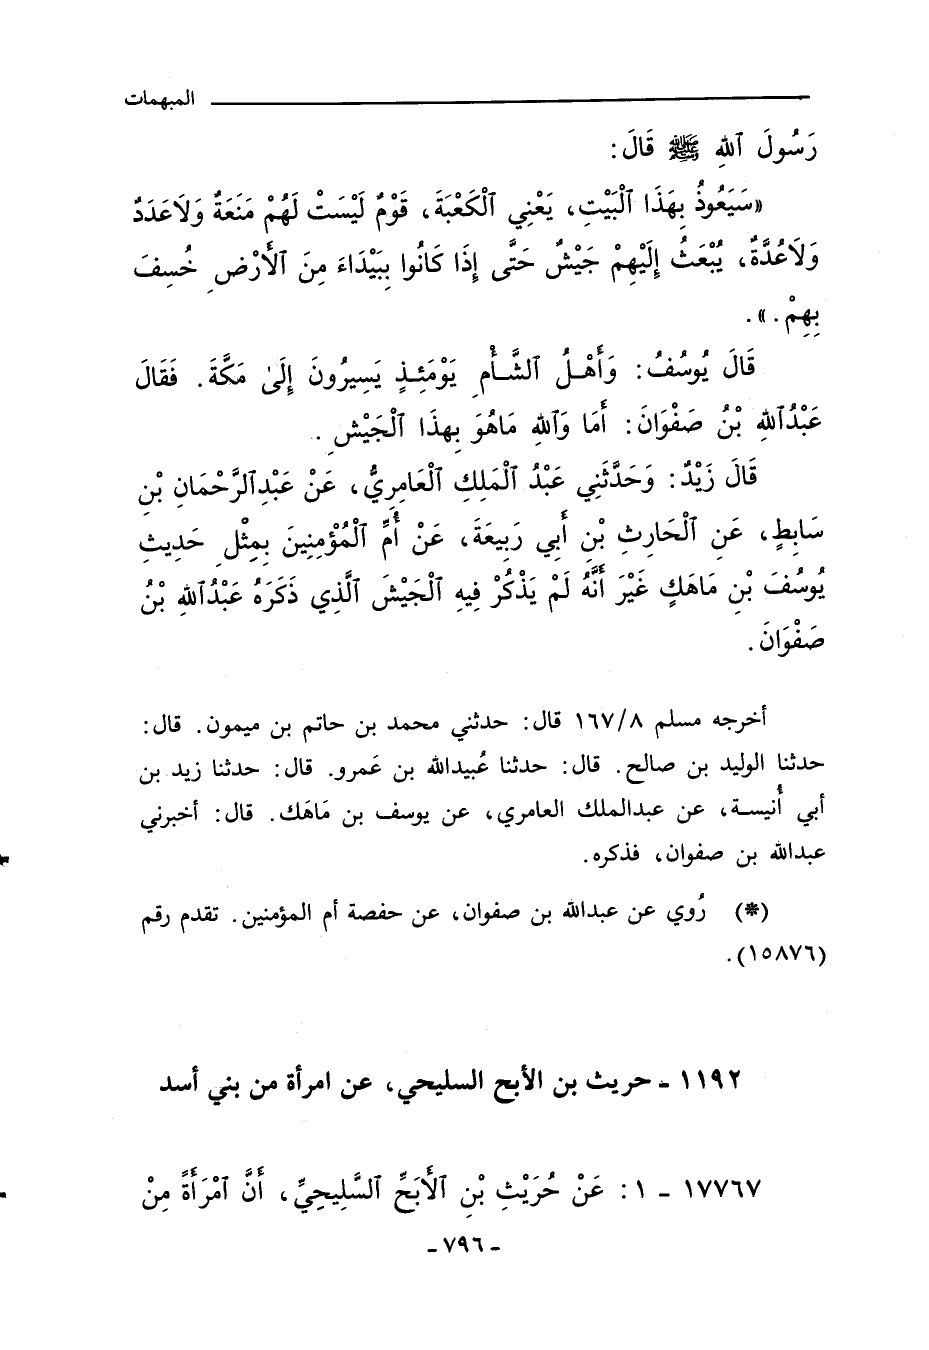 المبهمات
رَسُولَ ٱللهِ ﷺ قَالَ:
«سَيَعُوذُ بِهَذَا ٱلْبَيْتِ، يَعْنِي ٱلْكَعْبَةَ، قَوْمٌ لَيْسَتْ لَهُمْ مَنَعَةٌ وَلَا عَدَدٌ
وَلَا عُدَّةٌ، يُبْعَثُ إِلَيْهِمْ جَيْشٌ حَتَّى إِذَا كَانُوا بِبَيْدَاءَ مِنَ ٱلْأَرْضِ خُسِفَ
بِهِمْ.».
قَالَ يُوسُفُ: وَأَهْلُ ٱلشَّأْمِ يَوْمَئِذٍ يَسِيرُونَ إِلَىٰ مَكَّةَ. فَقَالَ
عَبْدُٱللهِ بْنُ صَفْوَانَ: أَمَا وَٱللهِ مَاهُوَ بِهذَا ٱلْجَيْشِ.
قَالَ زَيْدٌ: وَحَدَّثَنِي عَبْدُ ٱلْمَلِكِ ٱلْعَامِرِيُّ، عَنْ عَبْدِٱلرَّحْمَانِ بْنِ
سَابِطٍ، عَنِ ٱلْحَارِثِ بْنِ أَبِي رَبِيعَةَ، عَنْ أُمِّ ٱلْمُؤْمِنِينَ بِمِثْلِ حَدِيثِ
يُوسُفَ بْنِ مَاهَكٍ غَيْرَ أَنَّهُ لَمْ يَذْكُرْ فِيهِ ٱلْجَيْشَ ٱلَّذِي ذَكَرَهُ عَبْدُٱللهِ بْنُ
صَفْوَانَ.
أخرجه مسلم ١٦٧/٨ قال: حدثني محمد بن حاتم بن ميمون. قال:
حدثنا الوليد بن صالح. قال: حدثنا عُبيدالله بن عَمرو. قال: حدثنا زيد بن
أبي أُنيسة، عن عبدالملك العامري، عن يوسف بن مَاهَك. قال: أخبرني
عبدالله بن صفوان، فذكره.
(*) رُوي عن عبدالله بن صفوان، عن حفصة أم المؤمنين. تقدم رقم
(١٥٨٧٦).
١١٩٢ - حريث بن الأبح السليحي، عن امرأة من بني أسد
١٧٧٦٧ - ١: عَنْ حُرَيْثِ بْنِ ٱلْأَبَحِّ ٱلسَّلِيحِيِّ، أَنَّ ٱمْرَأَةً مِنْ
- ٧٩٦ -